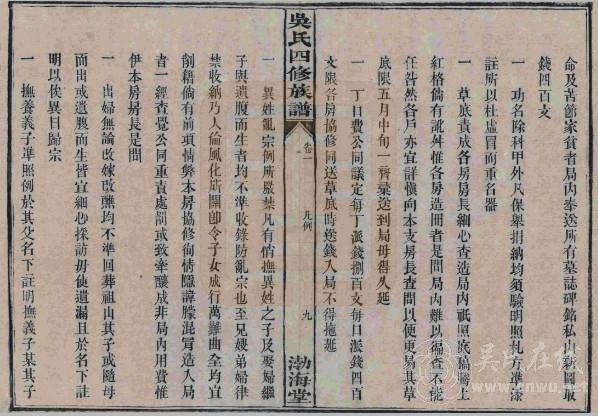 命及苦節家貧者局內奉送所有墓誌碑銘私山執圖取
錢四百文
一 功名除科甲外凡保舉捐納均須驗明照札方準
註所以杜虛冒而重名器
一 草底責成各房房長細心查造局內祇照底稿謄上
紅格倘有訛舛惟各房造冊者是問局內難以徧查不能
任咎然各戶亦宜詳慎向本支房長查問以便更易其草
底限五月中旬一齊彙送到局毋得久延
一 丁口費公同議定每丁派錢捌百文每口派錢四百
文限各房協修同送草底時送錢入局不得拖延
吳氏四修族譜
卷 凡例 九
渤海堂
一 異姓亂宗例所嚴禁凡有悄撫異姓之子及娶婦繼
子與遺腹而生者均不準收錄防亂宗也至兄嫂弟婦律
禁收納乃人倫風化所關卽令子女成行萬難曲全均宜
削籍倘有前項情弊本房協修徇情隱諱朦混冩造入局
者一經查覺公同重責處罰或致牽釀成非局內用費惟
伊本房房長是問
一 出婦無論改嫁改醮均不準回葬祖山其子或隨母
而出或遺腹而生皆宜細心採訪毋使遺漏且於名下註
明以俟異日歸宗
一 撫養義子準照例於其父名下註明撫義子某其子
吳氏在線
www.cnwu.net